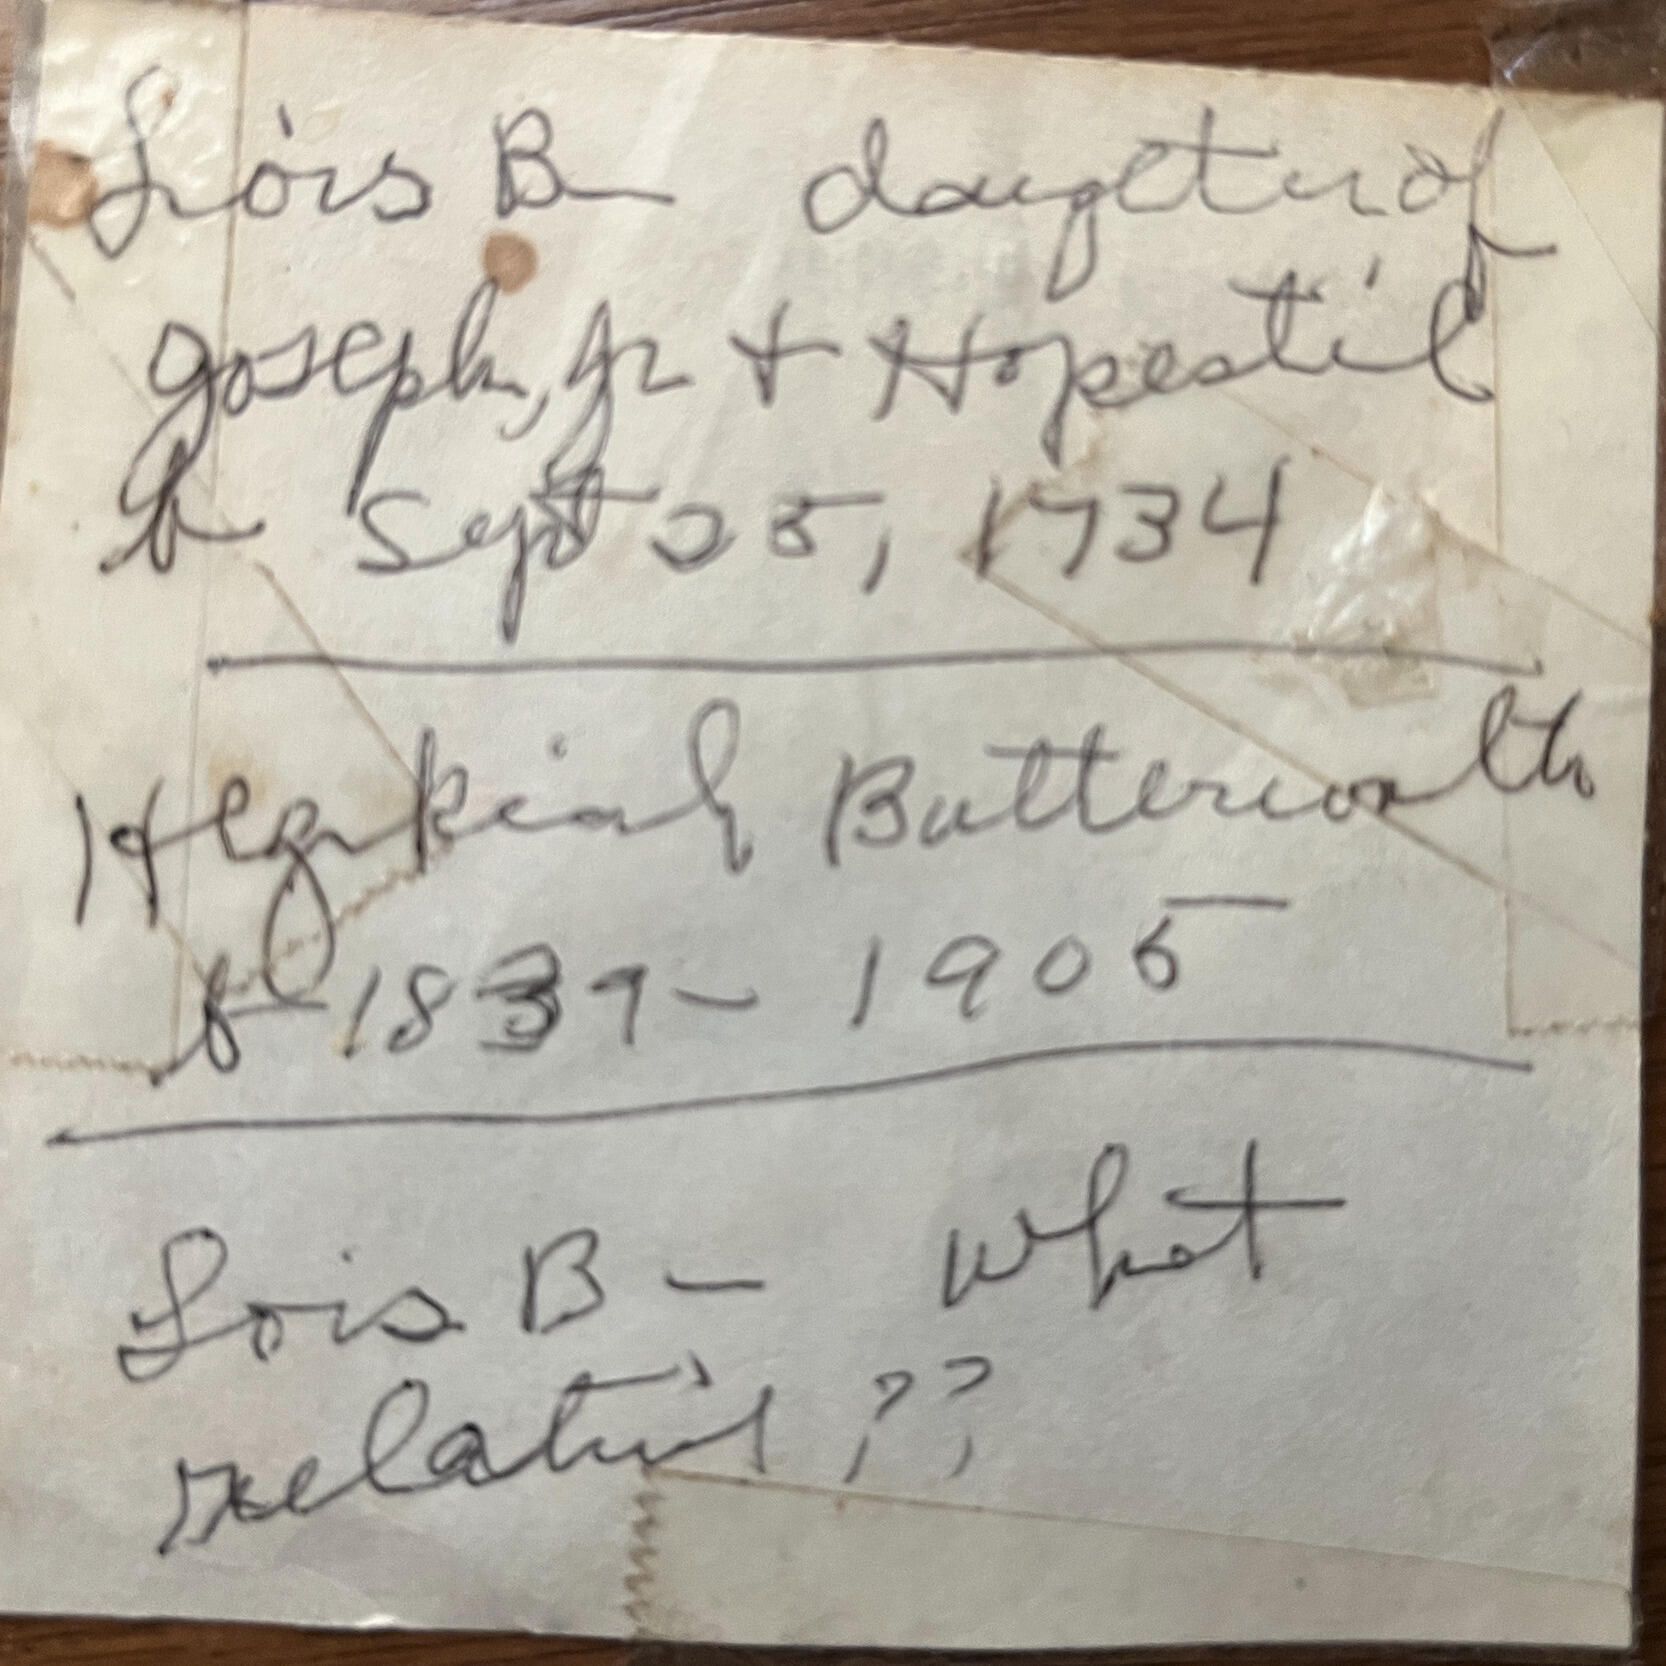 Lois B— daugter of
Joseph, Jr + Hopestil
b Sept 25, 1734
Hezekiah Butterworth
b— 1839 – 1905
Lois B — What
relation ??